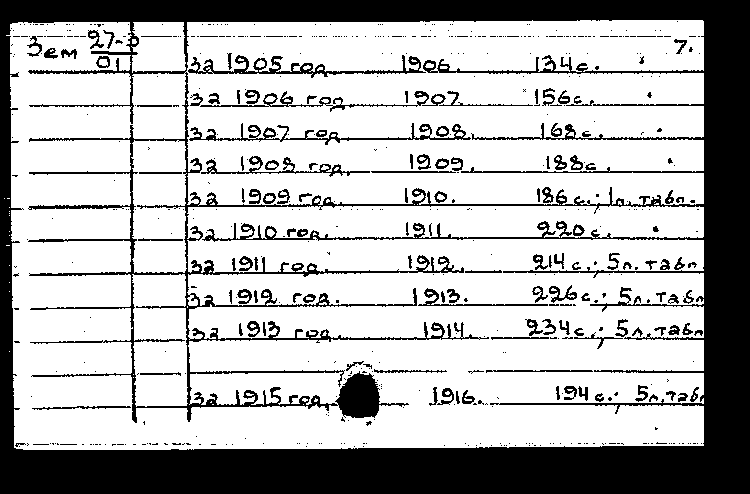 Зем 27-3 7.
01
за 1905 год 1906. 134 с.
за 1906 год. 1907. 156 с.
за 1907 год 1908. 168 с.
за 1908 год. 1909. 188 с.
за 1909 год. 1910. 186 с.; 1 л. табл.
за 1910 год. 1911. 220 с.
за 1911 год. 1912. 214 с.; 5 л. табл.
за 1912 год. 1913. 226 с.; 5 л. табл
за 1913 год. 1914. 234 с.; 5 л. табл
за 1915 год. 1916. 194 с.; 5 л. табл